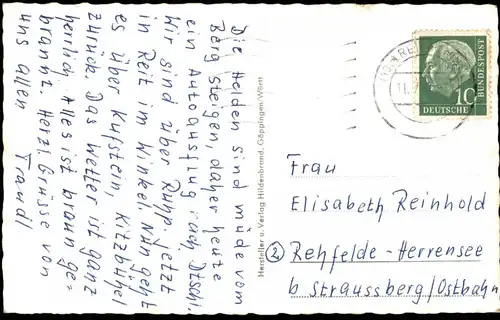 Die Helden sind müde vom
Berg steigen, daher heute
ein Autausflug nach Dtschl.
Wir sind über Ruhp. jetzt
in Reit im Winkel. Nun geht
es über Kufstein, Kitzbühel
zurück. Das Wetter ist ganz
herrlich. Alles ist braun ge-
brannt. Herzl. Grüsse von
uns allen Traudl
Hersteller u. Verlag Hildenbrand, Göppingen/Württ
DEUTSCHE
BUNDESPOST
10
Frau
Elisabeth Reinhold
2) Rehfelde-Herrensee
b Straussberg/Ostbahn